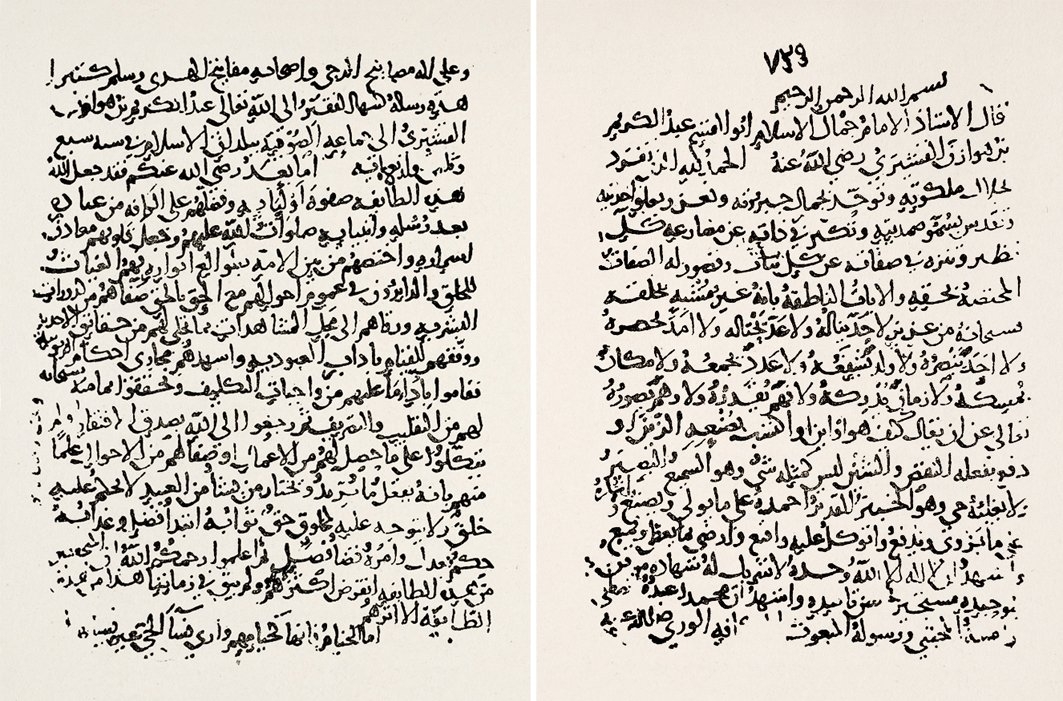 ٧٣٩
بسم الله الرحمن الرحيم
قال الاستاذ الامام جمال الاسلام ابو القسم عبد الكريم
بن هوازن القشيري رضي الله عنه الحمد لله الذي تفرد
بجلال ملكوته وتوحد بجمال جبروته وتعزز بعلو احديته
وتقدس بسمو صمديته وتكبر في ذاته عن مضارعة كل
نظير وتنزه في صفاته عن كل تناه وقصور له الصفات
المختصة بحقه والايات الناطقة بانه غير مشبه بخلقه
سبحانه من عزيز لا حد يناله ولا عد يحتاله ولا امد يحصره
ولا احد ينصره ولا ولد يشفعه ولا عدد يجمعه ولا مكان
يمسكه ولا زمان يدركه ولا فهم يقدره ولا وهم يصوره
تعالى عن ان يقال كيف هو او اين هو او اكتسب بصنعه الزين او
دفع بفعله النقص والشين ليس كمثله شئ وهو السميع البصير
ولا يغلبه حي وهو الخبير القدير احمده على ما يولي ويصنع
على ما يزوي ويدفع واتوكل عليه واقنع وارضى بما يعطي ويمنع
واشهد ان لا اله الا الله وحده لا شريك له شهادة موقن
بتوحيده مستجير بحسن تاييده واشهد ان محمدا عبده
المجتبى ورسوله المبعوث الى كافة الورى صلى الله عليه
وعلى اله مصابيح الدجى واصحابه مفاتيح الهدى وسلم كثيرا
هذه رسالة كتبها الفقير الى الله تعالى عبد الكريم بن هوازن
القشيري الى جماعة الصوفية ببلدان الاسلام في سنة سبع
وثلثين واربعمائة اما بعد رضي الله عنكم فقد جعل الله
هذه الطائفة صفوة اوليائه وفضلهم على الكافة من عباده
بعد رسله وانبيائه صلوات الله عليهم وجعل قلوبهم معادن
اسراره واختصهم من بين الامة بطوالع انواره فهم الغياث
للخلق والدايرون في عموم احوالهم مع الحق بالحق صفاهم من كدورات
البشرية ورقاهم الى محل المشاهدات بما تجلى لهم من حقائق الاحدية
ووفقهم للقيام باداب العبودية واشهدهم مجاري احكام الربوبية
فقاموا باداء ما عليهم من واجبات التكليف وتحققوا بما منه سبحانه
لهم من التقليب والتصريف ثم رجعوا الى الله بصدق الافتقار ولم
يتكلوا على ما حصل لهم من الاعمال او صفا لهم من الاحوال علما
منهم بانه يفعل ما يريد ويختار من يشا من العبيد لا يحكم عليه
خلق ولا يتوجه عليه لمخلوق حق ثوابه ابتدا فضل وعذابه
حكم بعدل وامره قضا فصل ثم اعلموا رحمكم الله ان المحققين
من هذه الطائفة انقرض اكثرهم ولم يبق في زماننا هذا من هذه
الطايفة الا اثرهم
اما الخيام فانها كخيامهم وارى نساء الحي غير نسائها